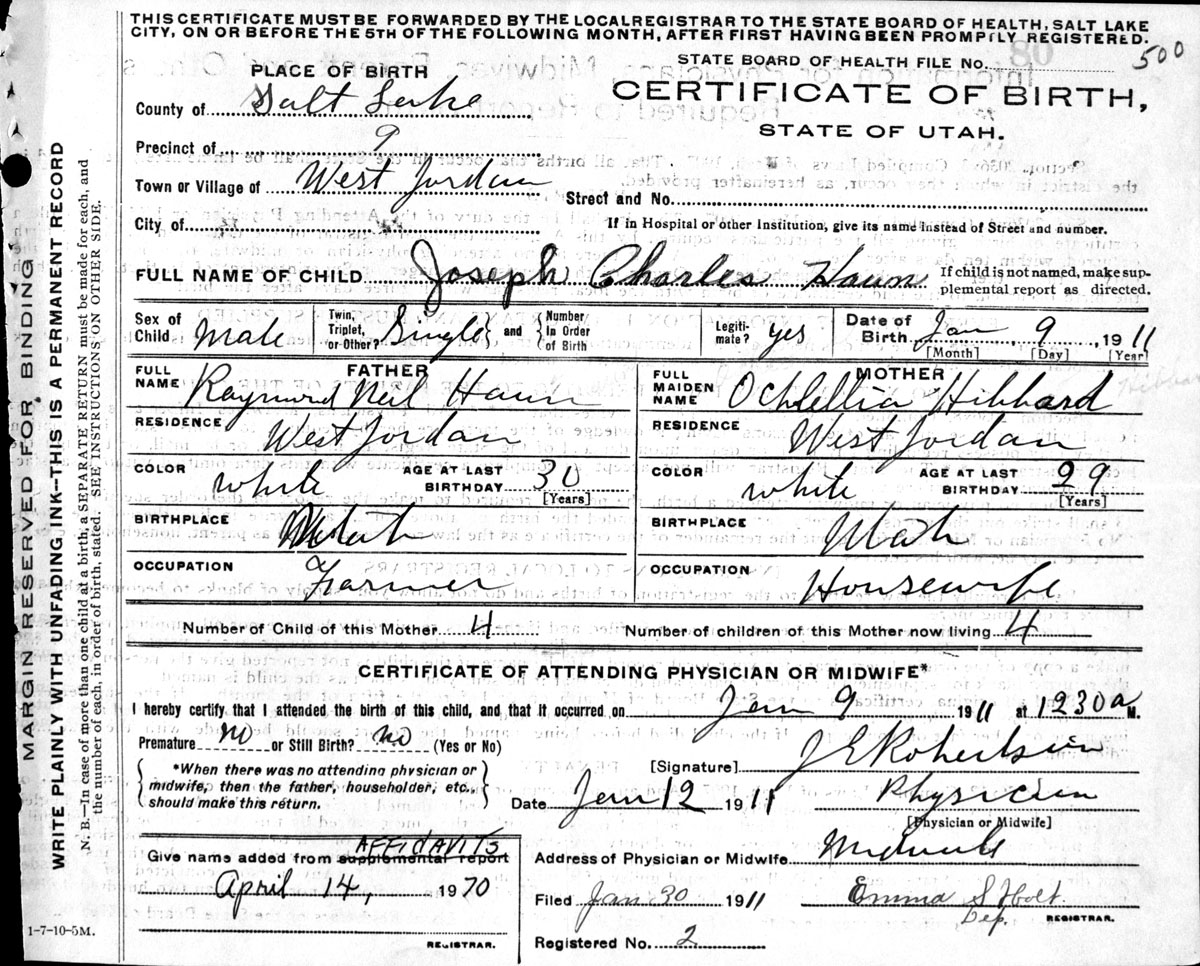 THIS CERTIFICATE MUST BE FORWARDED BY THE LOCAL REGISTRAR TO THE STATE BOARD OF HEALTH, SALT LAKE
CITY, ON OR BEFORE THE 5TH OF THE FOLLOWING MONTH, AFTER FIRST HAVING BEEN PROMPTLY REGISTERED.
STATE BOARD OF HEALTH FILE No. 500
PLACE OF BIRTH
CERTIFICATE OF BIRTH,
STATE OF UTAH.
County of Salt Lake
Precinct of 9
Town or Village of West Jordan Street and No.
City of If in Hospital or other Institution, give its name instead of Street and number.
FULL NAME OF CHILD Joseph Charles Haun If child is not named, make sup-
plemental report as directed.
Sex of Child Male Twin, Triplet, or Other? Single and Number In Order of Birth Legiti- mate? yes Date of Birth Jan 9 1911
[Month] [Day] [Year]
FATHER MOTHER
FULL NAME Raymond Neil Haun FULL MAIDEN NAME Ochlellia Hibbard
RESIDENCE West Jordan RESIDENCE West Jordan
COLOR white AGE AT LAST BIRTHDAY 30 [Years] COLOR white AGE AT LAST BIRTHDAY 29 [Years]
BIRTHPLACE Utah BIRTHPLACE Utah
OCCUPATION Farmer OCCUPATION Housewife
Number of Child of this Mother 4 Number of children of this Mother now living 4
CERTIFICATE OF ATTENDING PHYSICIAN OR MIDWIFE*
I hereby certify that I attended the birth of this child, and that it occurred on Jan 9 1911 at 1230 a M.
Premature no or Still Birth? no (Yes or No)
*When there was no attending physician or
midwife, then the father, householder, etc.,
should make this return.
[Signature] J E Robertson
Date Jan 12 1911 Physician
[Physician or Midwife]
AFFIDAVITS
Give name added from supplemental report
April 14, 1970
REGISTRAR.
Address of Physician or Midwife Midvale
Filed Jan 30 1911 Emma S Holt
Dep. REGISTRAR.
Registered No. 2
1-7-10-5M.
MARGIN RESERVED FOR BINDING
WRITE PLAINLY WITH UNFADING INK--THIS IS A PERMANENT RECORD
N. B.--In case of more than one child at a birth, a SEPARATE RETURN must be made for each, and
the number of each, in order of birth, stated. SEE INSTRUCTIONS ON OTHER SIDE.